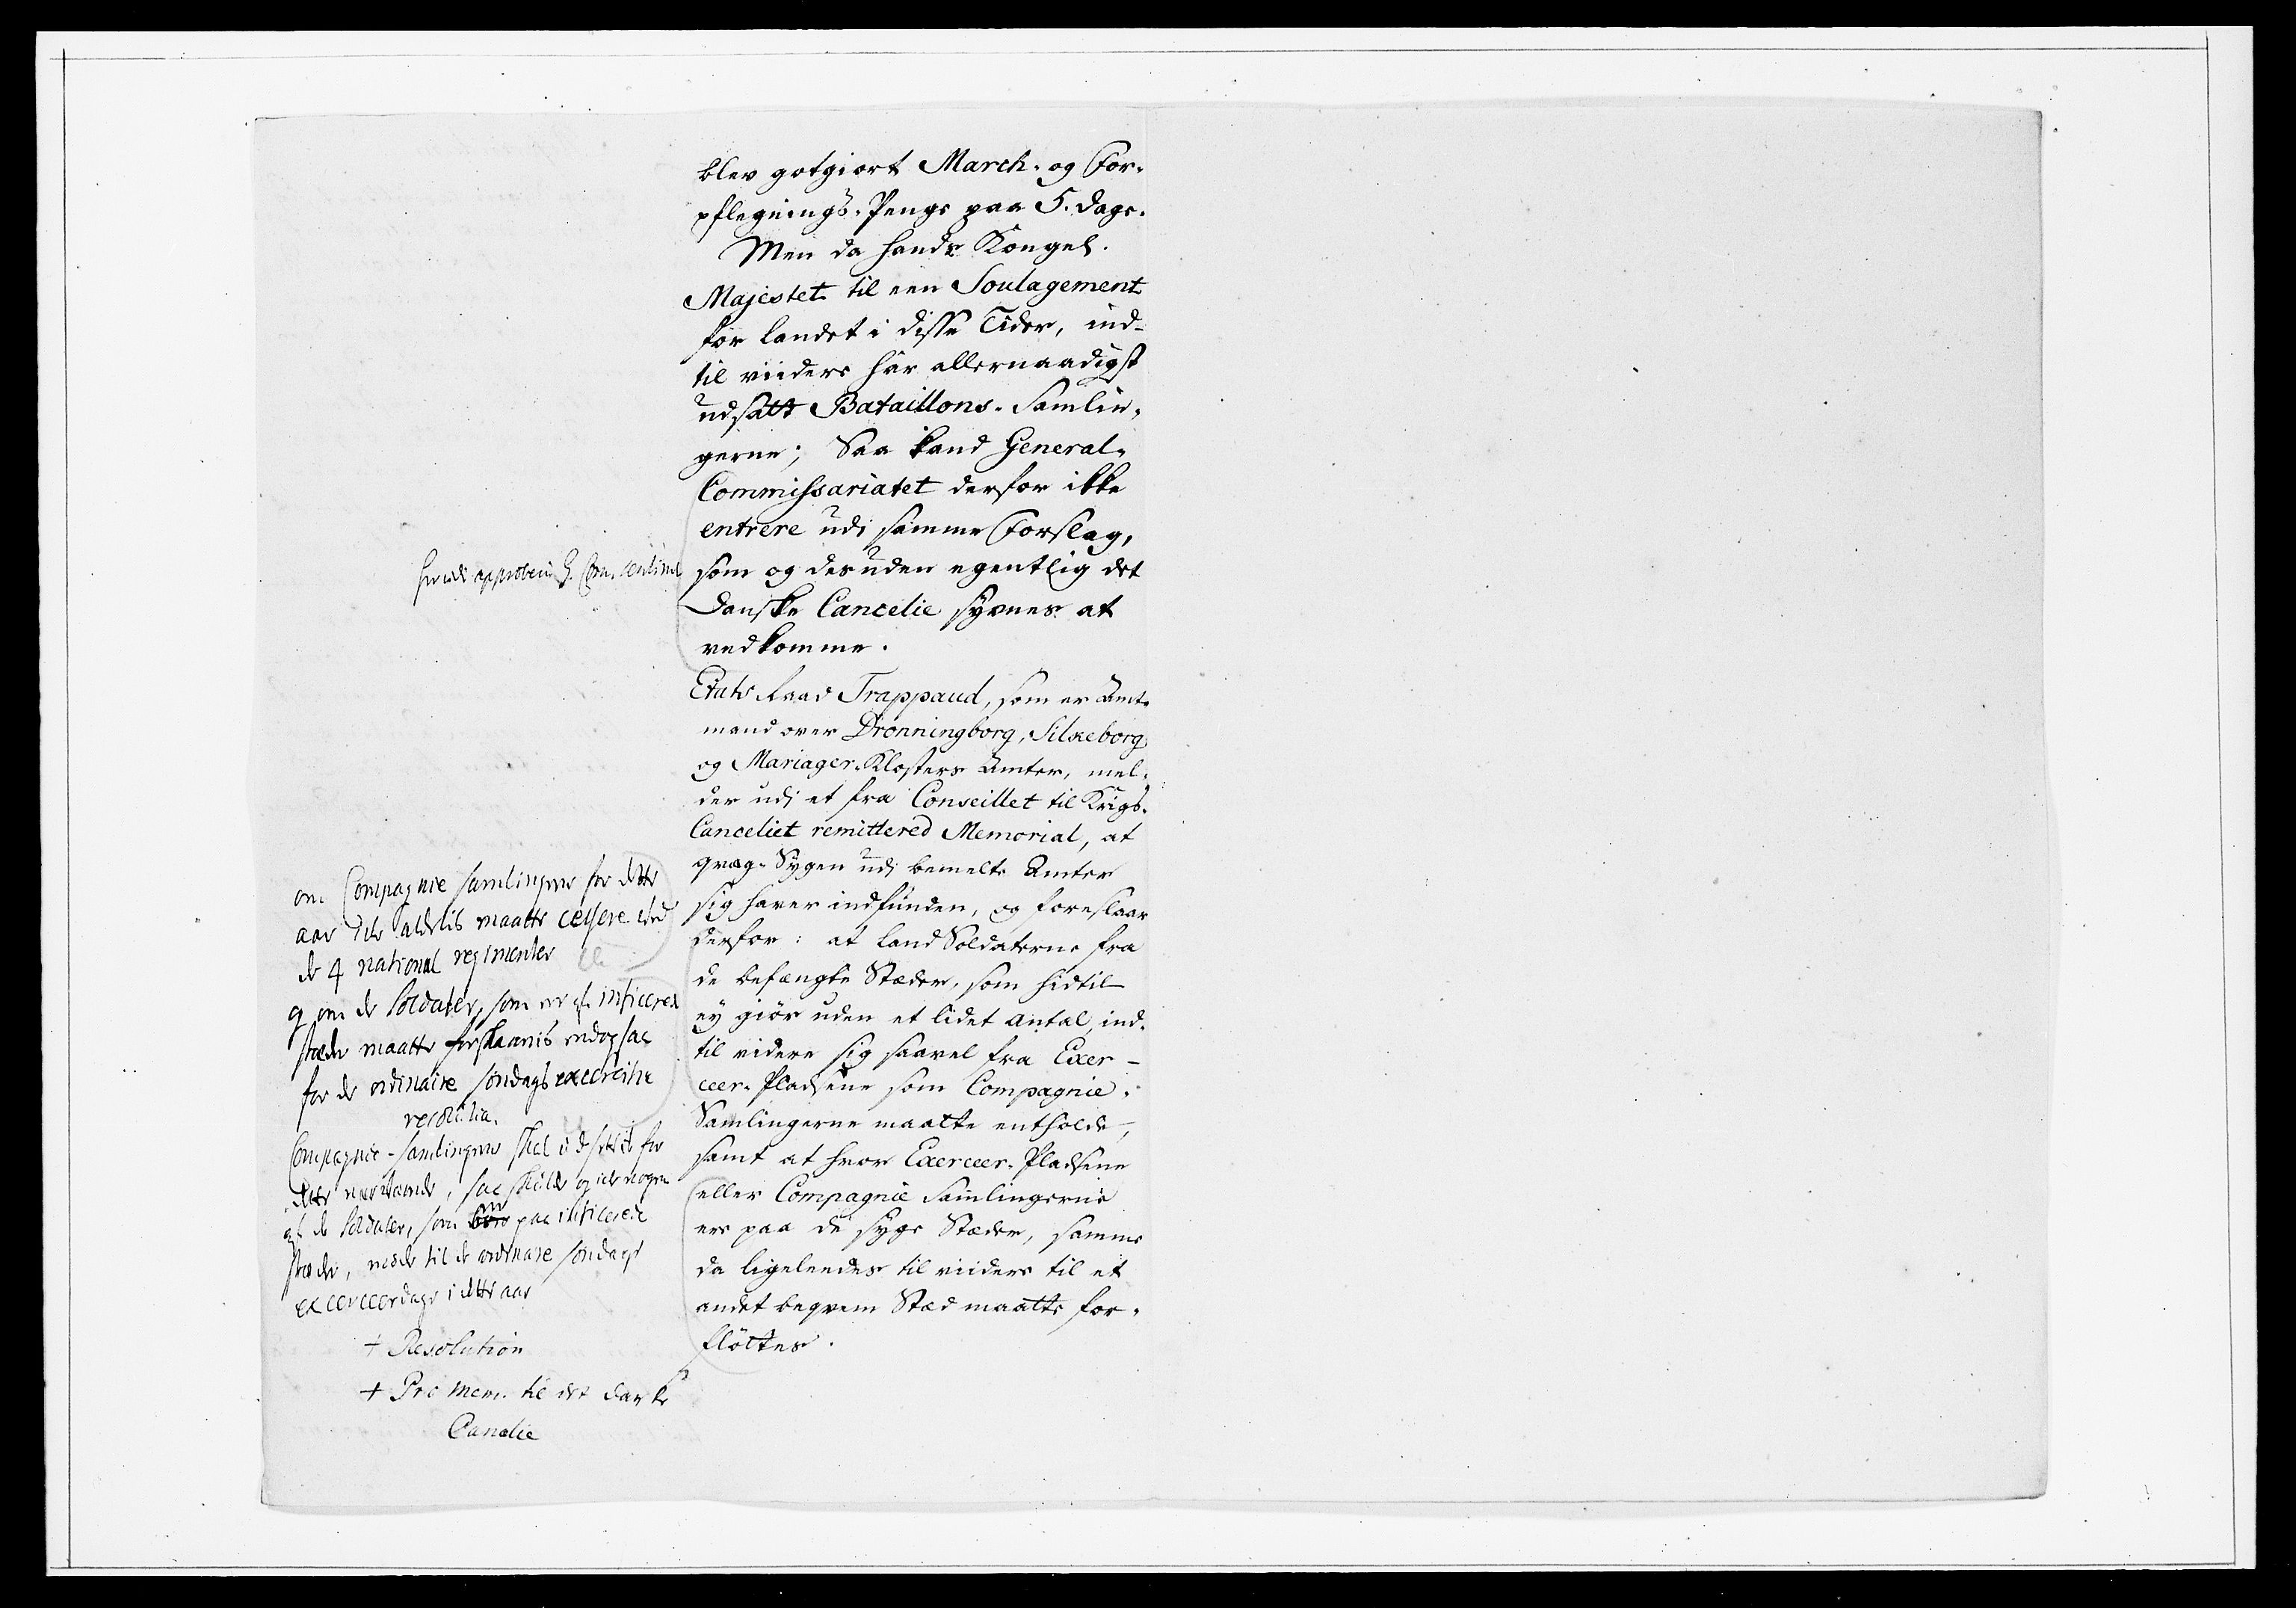 blev gotgiort March- og For-
pflegnings-Penge paa 5. dage.
Men da hands Kongel.
Majestet til een Soulagement
for landet i disse Tider, ind-
til viidere har allernaadigst
udsatt Bataillons-Samlin-
gerne; Saa kand General-
Commissariatet derfor ikke
entrere udi samme Forslag,
som og desuden egentlig det
Danske Cancelie synes at
vedkomme.
Etats Raad Trappaud, som er Amt-
mand over Dronningborg, Silkeborg
og Mariager-Klosters Amter, mel-
der udi et fra Conseillet til Krigs-
Canceliet remittered Memorial, at
qvæg-Sygen udi bemelte Amter
sig haver indfunden, og foreslaar
derfor: at land Soldaterne fra
de befængte Stæder, som hidtil
ey giør uden et lidet antal, ind-
til videre sig saavel fra Exer-
ceer-Pladsene som Compagnie-
Samlingerne maatte entholde,
samt at hvor Exerceer-Pladsene
eller Compagnie Samlingerne
ere paa de syge Stæder, samme
da ligeleedes til viidere til et
andet beqvem Stæd maatte for-
flöttes.
herudi approberis G. Com. sentiment
om Compagnie samlingerne for dette
aar icke aldelis maatte cessere ved
de 4 national regimenter
og om de Soldater, som er af inficerede
stæder maatte forskaanis endog saa
for de ordinaire søndags exercitie
resolutia.
Compagnie-samlingerne skal udsettes for
dette nærværende, saa skulde og icke nogen
af de Soldater, som er paa inficerede
stæder, møde til de ordinaire søndags
exerceerdage i dette aar
+ Resolution
+ Pro Mem. til det danske
Cancelie